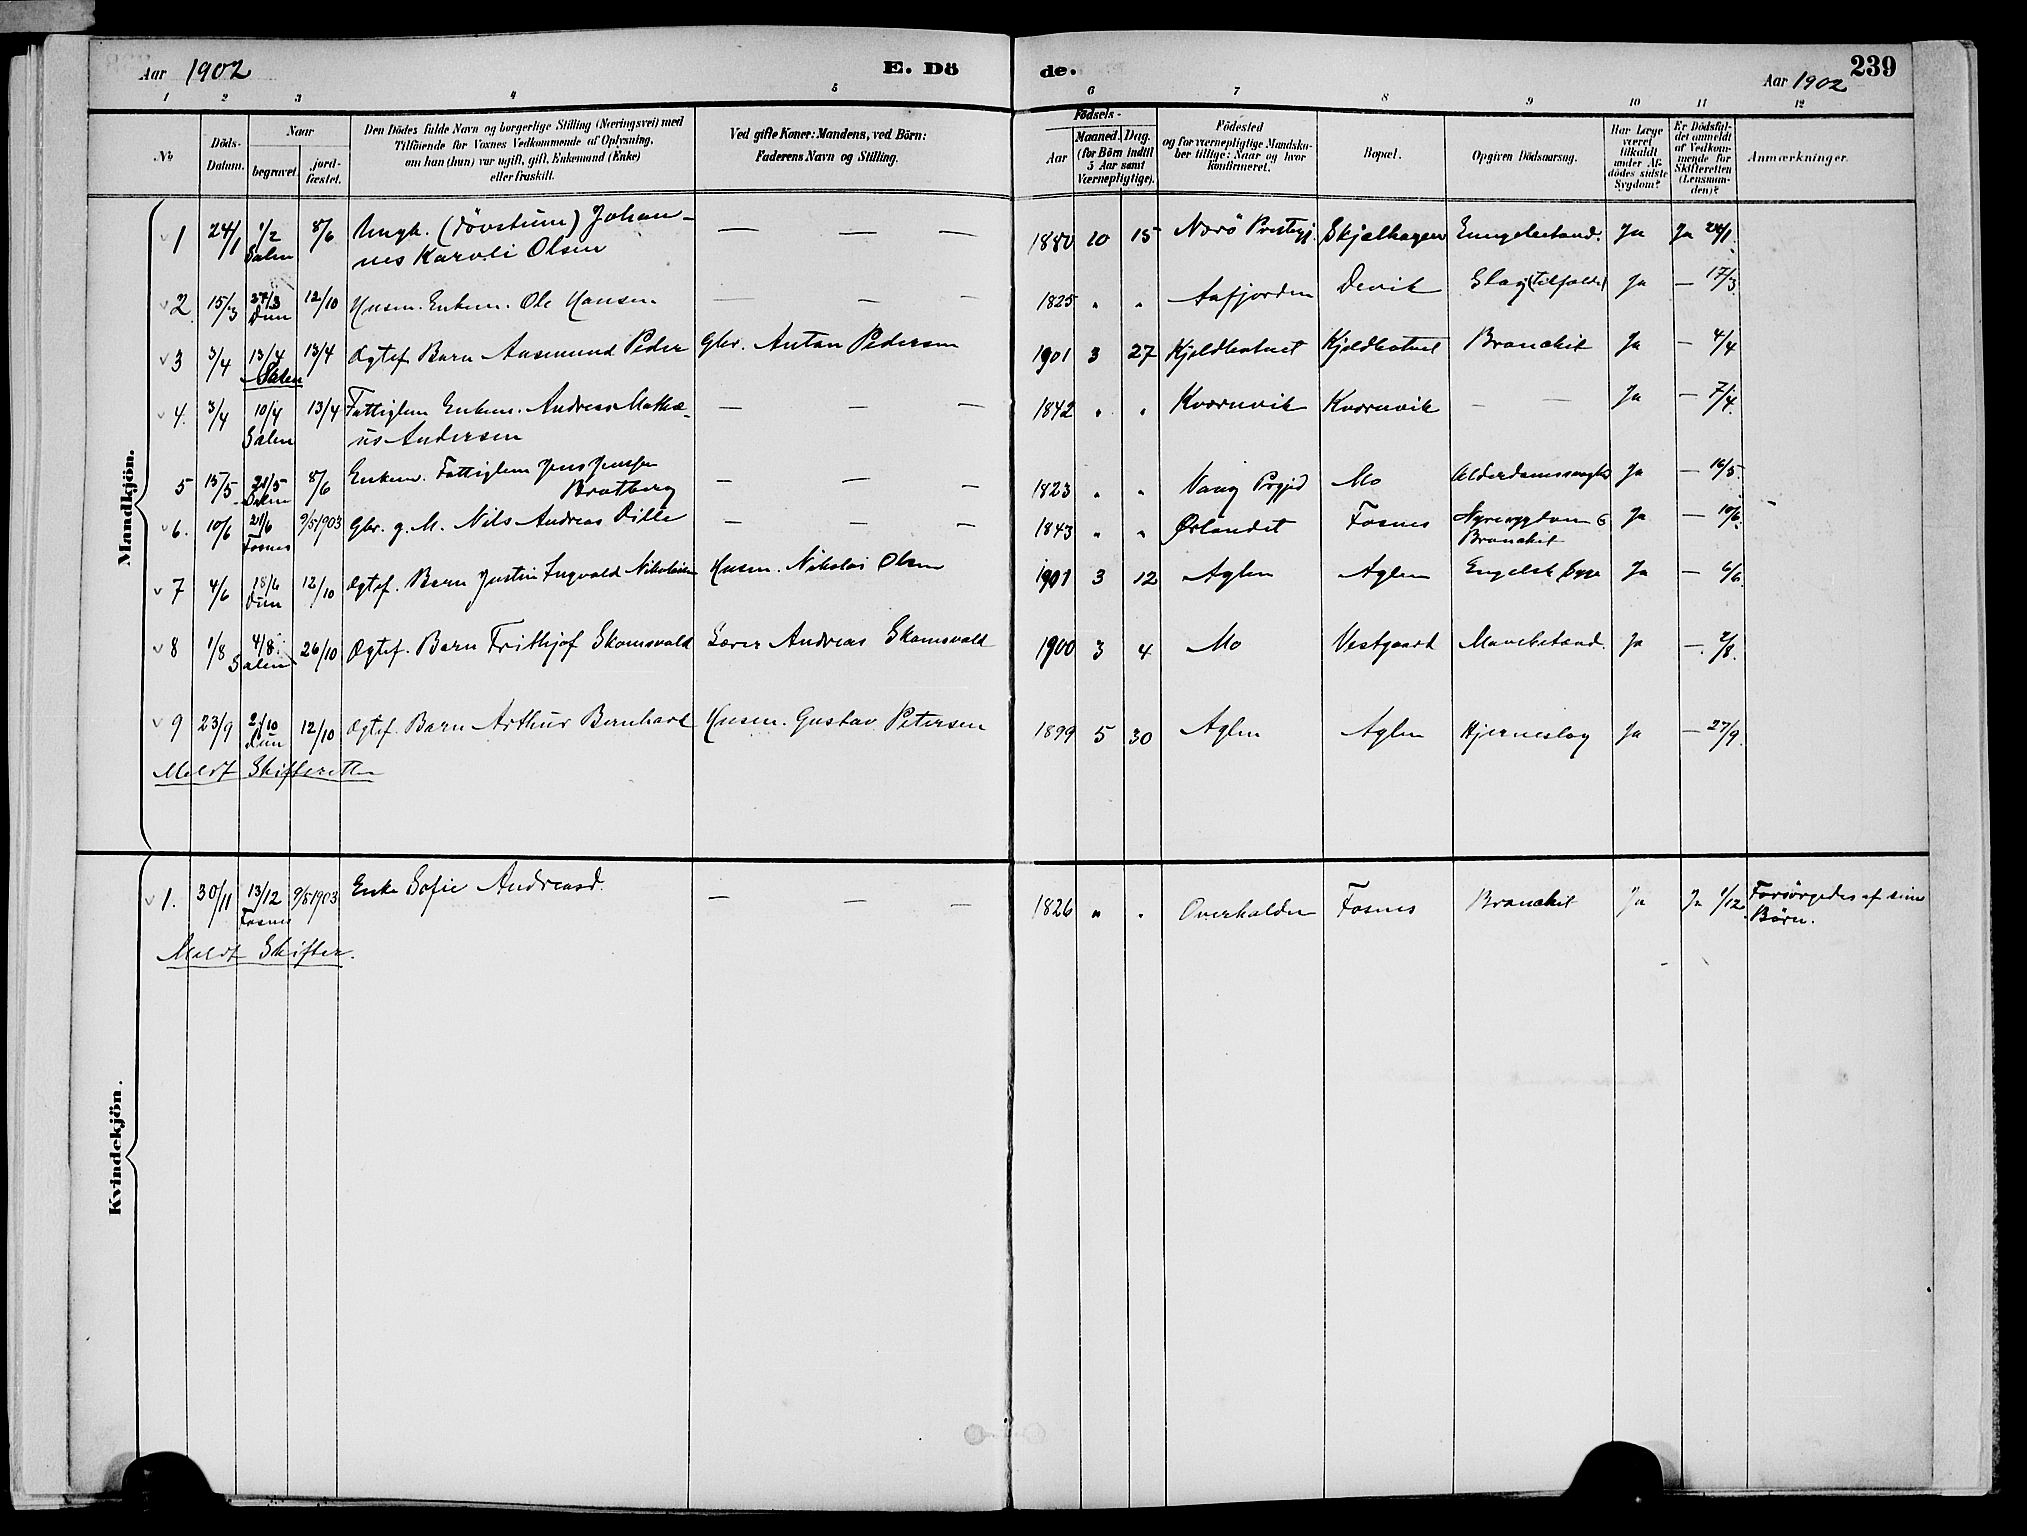 Aar 1902 E. Dö de. Aar 1902 239
1 2 3 4 5 6 7 8 9 10 11 12
No
Döds-Datum.
Naar
begravet.
jord-fæstet.
Den Dödes fulde Navn og borgerlige Stilling (Næringsvei) med
Tilföiende for Voxnes Vedkommende af Oplysning,
om han (hun) var ugift, gift, Enkemand (Enke)
eller fraskilt.
Ved gifte Koner: Mandens, ved Börn:
Faderens Navn og Stilling.
Födsels-
Aar
Maaned. Dag.
(for Börn indtil
5 Aar samt
Værnepligtige).
Födested
og for værnepligtige Mandska-
ber tillige: Naar og hvor
konfirmeret.
Bopæl.
Opgiven Dödsaarsag.
Har Læge
været
tilkaldt
under Af-
dödes sidste
Sygdom?
Er Dödsfal-
det anmeldt
af Vedkom-
mende for
Skifteretten
(Lensman-
den)?
Anmærkninger.
Mandkjön.
1 24/1 1/2 Salen 8/6 Ungk. (døvstum) Johan-
nes Karoli Olsen — — — 1880 10 15 Nærö Prstgj. Skjælhagen Lungebetænd. Ja Ja 24/1.
2 15/3 27/3 Dun 12/10 Husm. Enkem. Ole Hansen — — — 1825 " " Aafjorden Devik Slag (tilfælde) Ja — 17/3
3 3/4 13/4 Salen 13/4 Ægtef. Barn Aasmund Peder Gbr. Anton Pedersen 1901 3 27 Kjeldbotnet Kjeldbotnet Bronchit Ja — 4/4
4. 3/4 10/4 Salen 13/4 Fattiglem Enkem. Andreas Mathæ-
us Andersen — — — 1842 " " Kvernvik Kvernvik — — Ja — 7/4.
5 15/5 21/5 Salen 8/6 Enkem. Fattiglem Jens Jensen
Bratberg — — — 1823 " " Vang Prgjd Mo Alderdomssvaghed Ja — 16/5.
6. 10/6 21/6 Fosnes 9/5 1903 Gbr. g. M. Nils Andreas Dille — — — 1843 " " Ørlandet Fosnes Nyresygdom &
Bronchit Ja — 10/6.
7 4/6 18/6 Dun 12/10 Ægtef. Barn Justin Ingvald Nikolaisen Husm. Nikolai Olsen 1901 3 12 Aglen Aglen Engelsk Syge Ja — 6/6
8 1/8 4/8. Salen 26/10 Ægtef. Barn Frithjof Skomsvold Lærer Andreas Skomsvold 1900 3 4 Mo Vestgaard Mavebetænd. Ja — 2/8.
9 23/9 2/10 Dun 12/10 Ægtef. Barn Arthur Bernhard Husm. Gustav Petersen 1899 5 30 Aglen Aglen Hjerneslag Ja — 27/9.
Meldt Skifteretten
Kvindekjön.
1. 30/11 13/12 Fosnes 9/5 1903 Enke Sofie Andreasd. — — — 1826 " " Overhalden Fosnes Bronchit Ja Ja 1/12. Forsørgedes af sine
Börn.
Meldt Skifter.